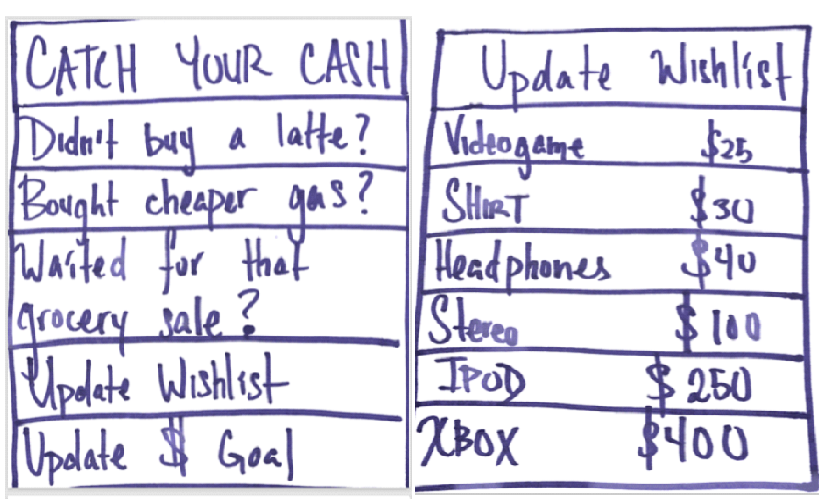 CATCH YOUR CASH
Didn't buy a latte?
Bought cheaper gas?
Waited for that
grocery sale?
Update Wishlist
Update $ Goal
Update Wishlist
Videogame $25
SHIRT $30
Headphones $40
Stereo $100
IPOD $250
XBOX $400